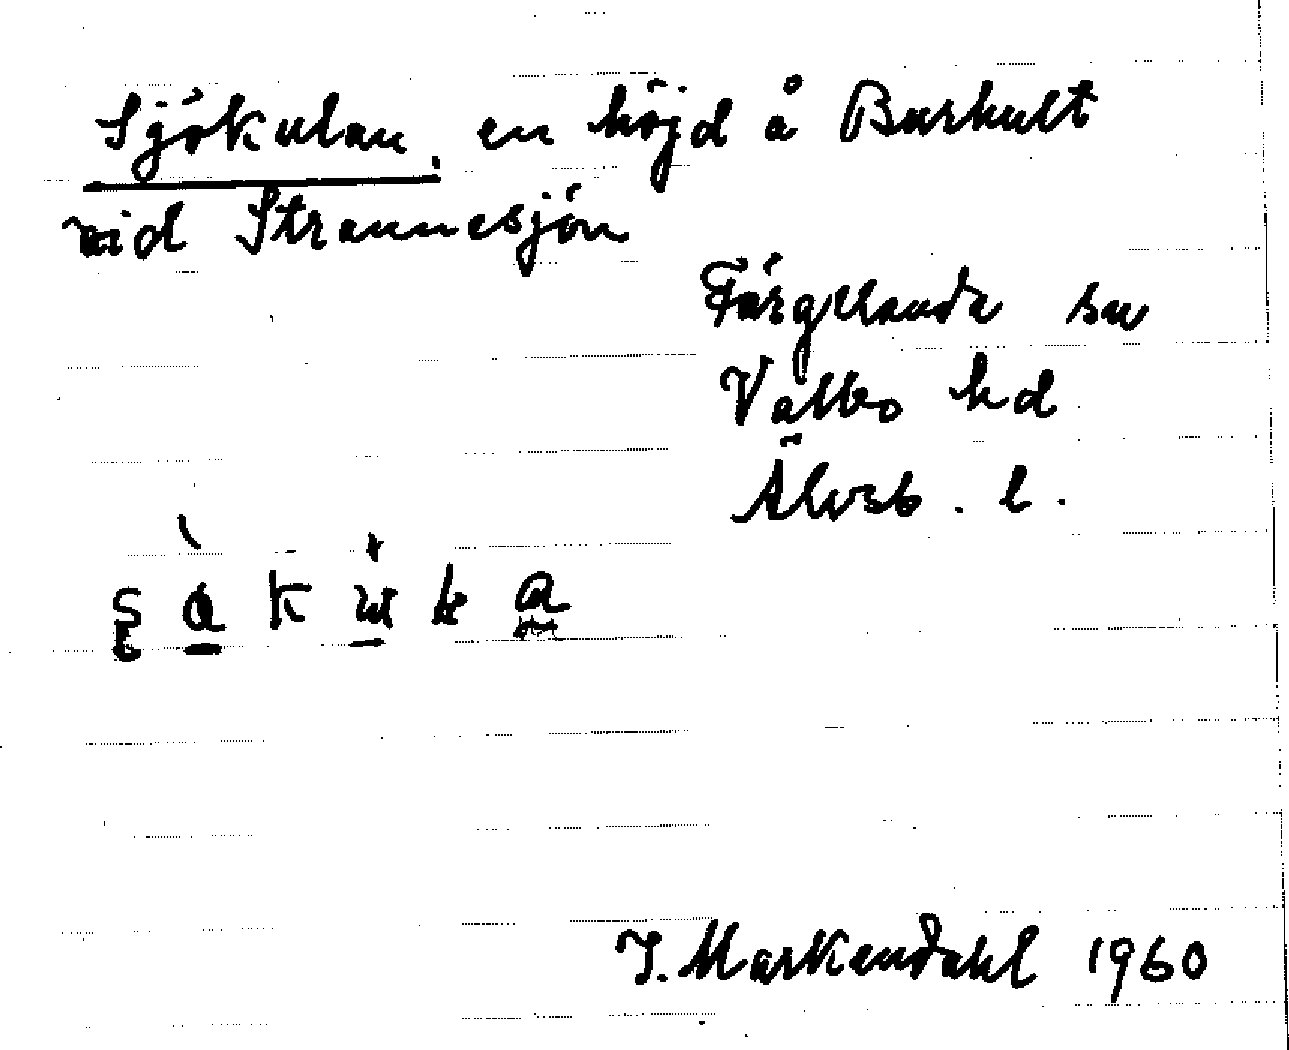 Sjökulan, en höjd å Burhult
vid Strannesjön
Färgelanda sn
Valbo hd
Älvsb. l.
I. Markendahl 1960